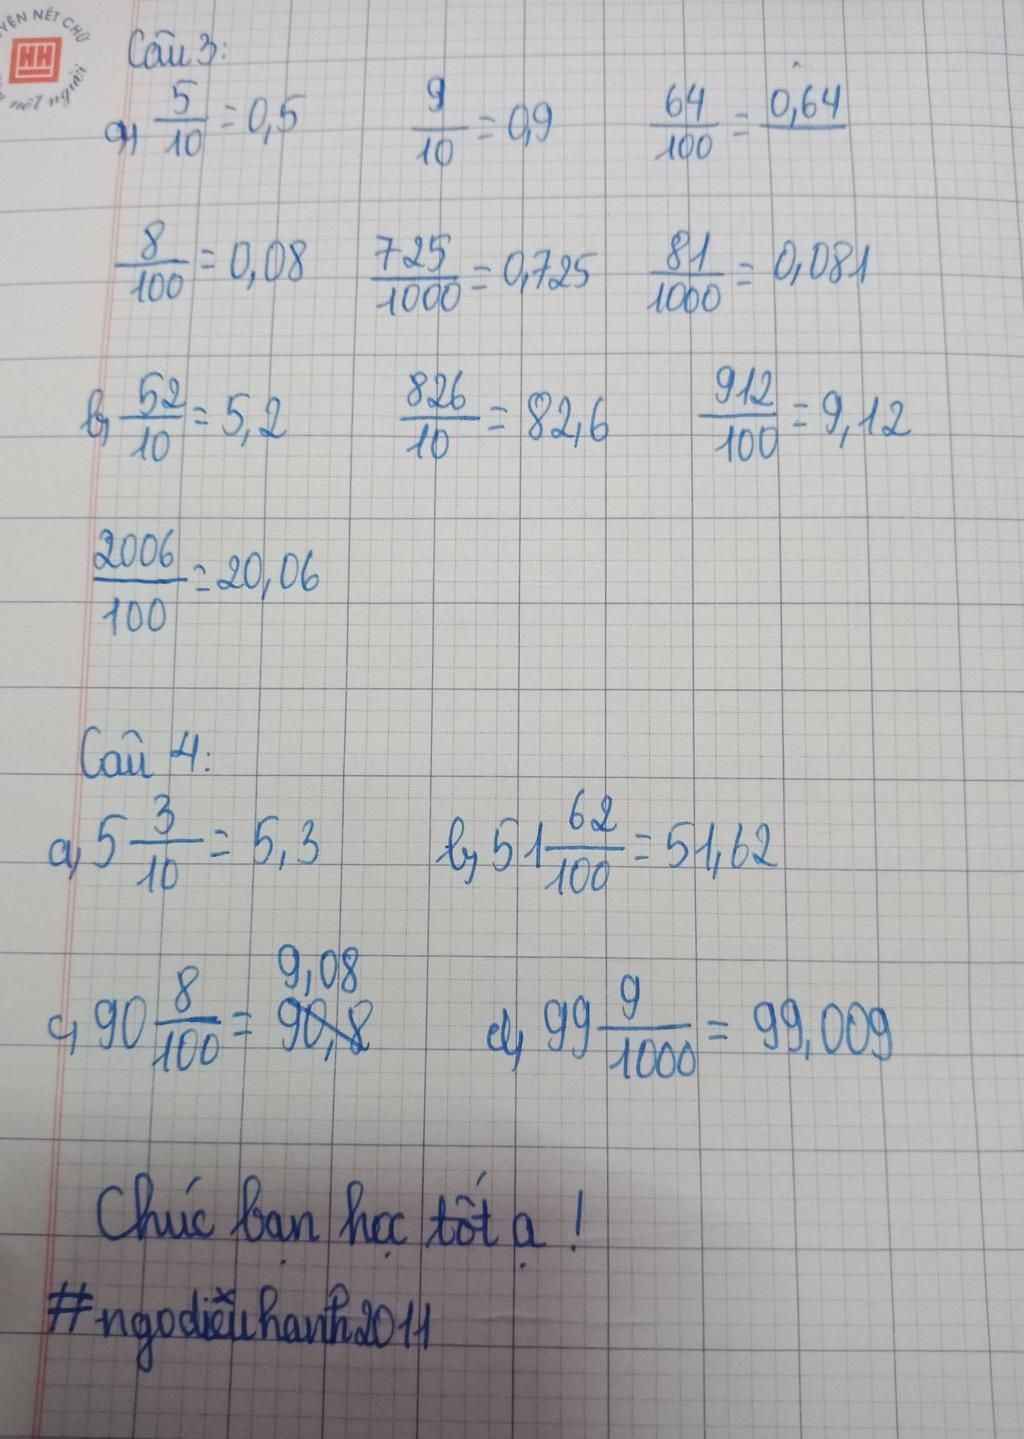 YỆN NÉT CHỮ
HH
nét người
Câu 3:
a, 5/10 = 0,5 9/10 = 0,9 64/100 = 0,64
8/100 = 0,08 725/1000 = 0,725 81/1000 = 0,081
b, 52/10 = 5,2 826/10 = 82,6 912/100 = 9,12
2006/100 = 20,06
Câu 4:
a, 5 3/10 = 5,3 b, 51 62/100 = 51,62
9,08
c, 90 8/100 = 90,8 d, 99 9/1000 = 99,009
Chúc bạn học tốt ạ!
#ngodiễuhanh2011